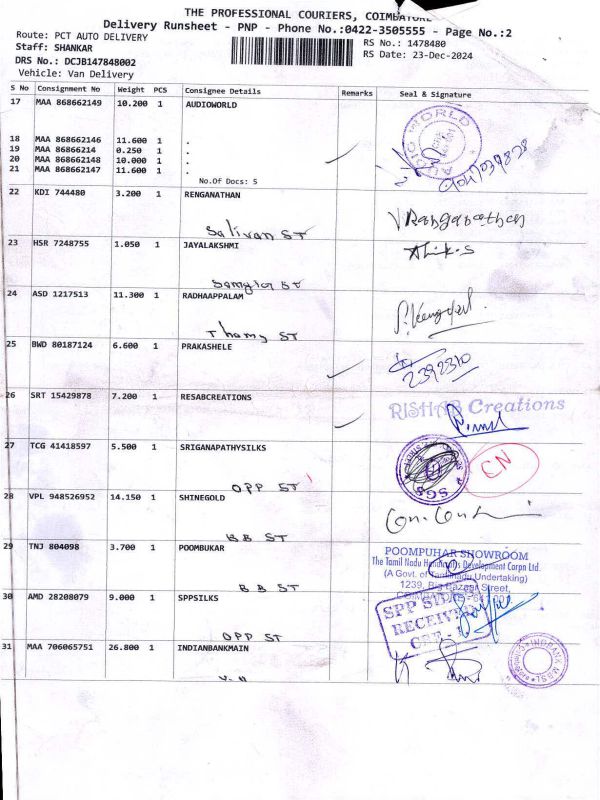 THE PROFESSIONAL COURIERS, COIMBATORE
Delivery Runsheet - PNP - Phone No.:0422-3505555 - Page No.:2
Route: PCT AUTO DELIVERY
RS No.: 1478480
Staff: SHANKAR
RS Date: 23-Dec-2024
DRS No.: DCJB147848002
Vehicle: Van Delivery
S No Consignment No Weight PCS Consignee Details Remarks Seal & Signature
17 MAA 868662149 10.200 1 AUDIOWORLD
AUDIO WORLD
18 MAA 868662146 11.600 1 .
19 MAA 86866214 0.250 1 .
20 MAA 868662148 10.000 1 .
21 MAA 868662147 11.600 1 .
No.Of Docs: 5
22 KDI 744480 3.200 1 RENGANATHAN
V Ranganathan
Salivan ST
23 HSR 7248755 1.050 1 JAYALAKSHMI
ST
24 ASD 1217513 11.300 1 RADHAAPPALAM
Thamu ST
25 BWD 80187124 6.600 1 PRAKASHELE
2392310
26 SRT 15429878 7.200 1 RESABCREATIONS
RISHAB Creations
27 TCG 41418597 5.500 1 SRIGANAPATHYSILKS
SGS
CN
OPP ST
28 VPL 948526952 14.150 1 SHINEGOLD
BB ST
29 TNJ 804098 3.700 1 POOMBUKAR
POOMPUHAR SHOWROOM
The Tamil Nadu Handicrafts Development Corpn Ltd.
(A Govt. of Tamilnadu Undertaking)
1239, Big Bazaar Street,
BB ST
30 AMD 28208079 9.000 1 SPPSILKS
SPP SILKS
RECEIVED
OPP ST
31 MAA 706065751 26.800 1 INDIANBANKMAIN